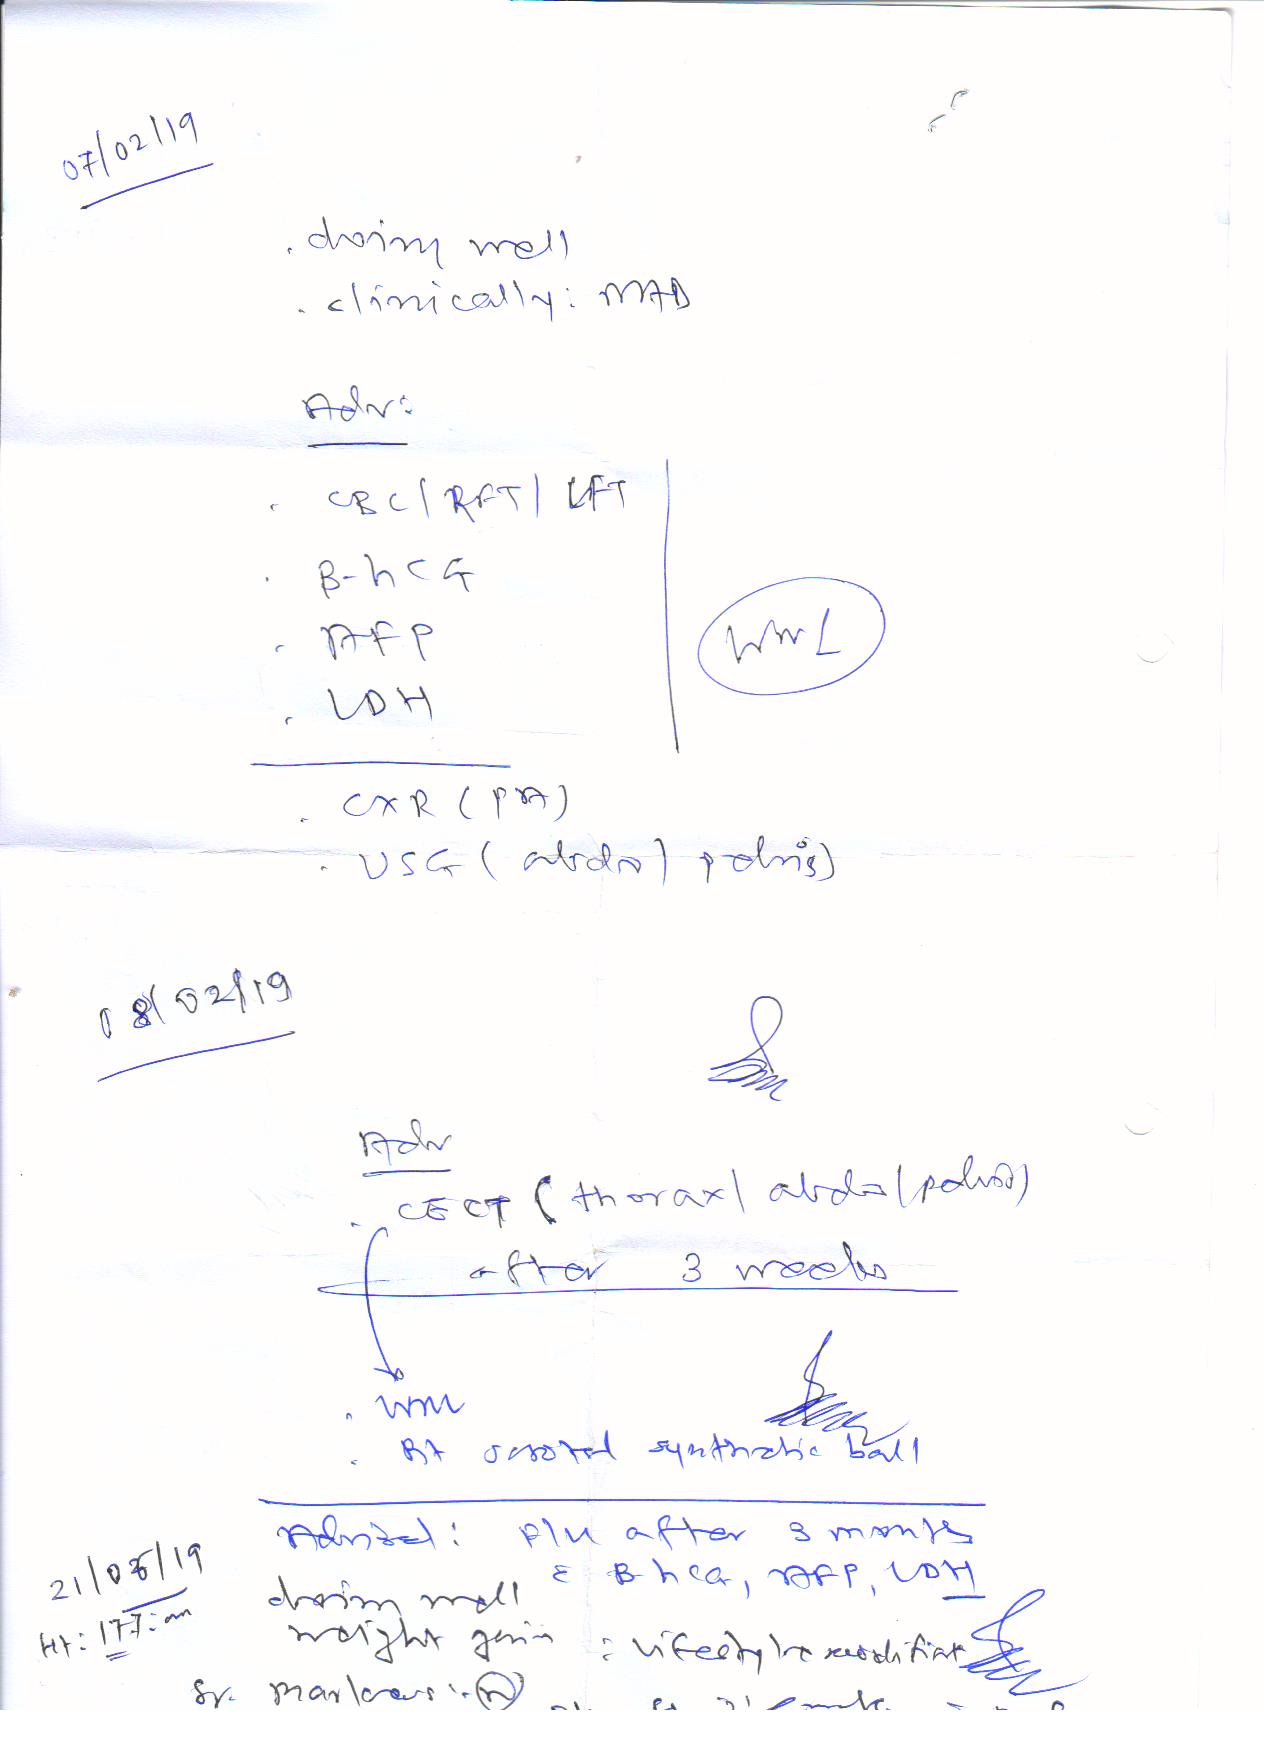 07/02/19
. doing well
. clinically: NAD
Adv:
. CBC/RFT/LFT
. B-hCG
. AFP
. LDH
WNL
. CXR (PA)
. USG (abdo/pelvis)
08/02/19
Adv
. CECT (thorax/abdo/pelvis)
after 3 weeks
. WNL
. Rt scrotal synthetic ball
Advised: F/U after 3 months
c B-hCG, AFP, LDH
21/05/19
Ht: 177 cm
doing well
weight gain : Lifestyle modificat
Sr. Markers: (N)